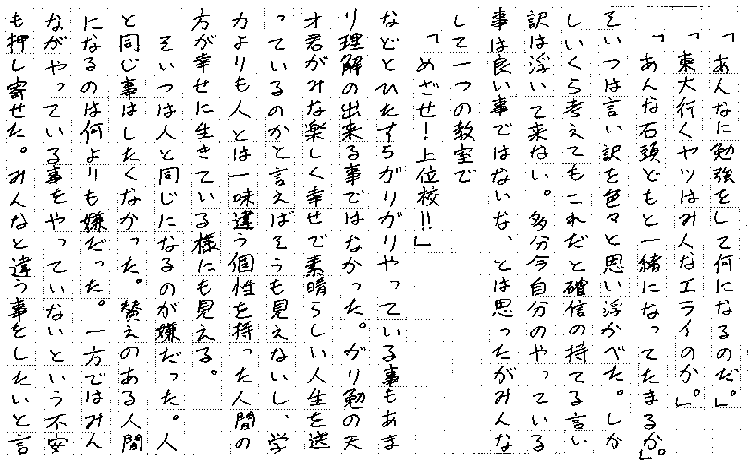 「あんなに勉強をして何になるのだ。」
「東大行くヤツはみんなエライのか。」
「あんな石頭どもと一緒になってたまるか。」
そいつは言い訳を色々と思い浮かべた。しか
しいくら考えてもこれだと確信の持てる言い
訳は浮いて来ない。多分今自分のやっている
事は良い事ではないな、とは思ったがみんな
して一つの教室で
「めざせ!上位校!!」
などとひたすらがりがりやっている事もあま
り理解の出来る事ではなかった。がり勉の天
才君がみな楽しく幸せで素晴らしい人生を送
っているのかと言えばそうも見えないし、学
力よりも人とは一味違う個性を持った人間の
方が幸せに生きている様にも見える。
そいつは人と同じになるのが嫌だった。人
と同じ事はしたくなかった。賛えのある人間
になるのは何よりも嫌だった。一方ではみん
ながやっている事をやっていないという不安
も押し寄せた。みんなと違う事をしたいと言